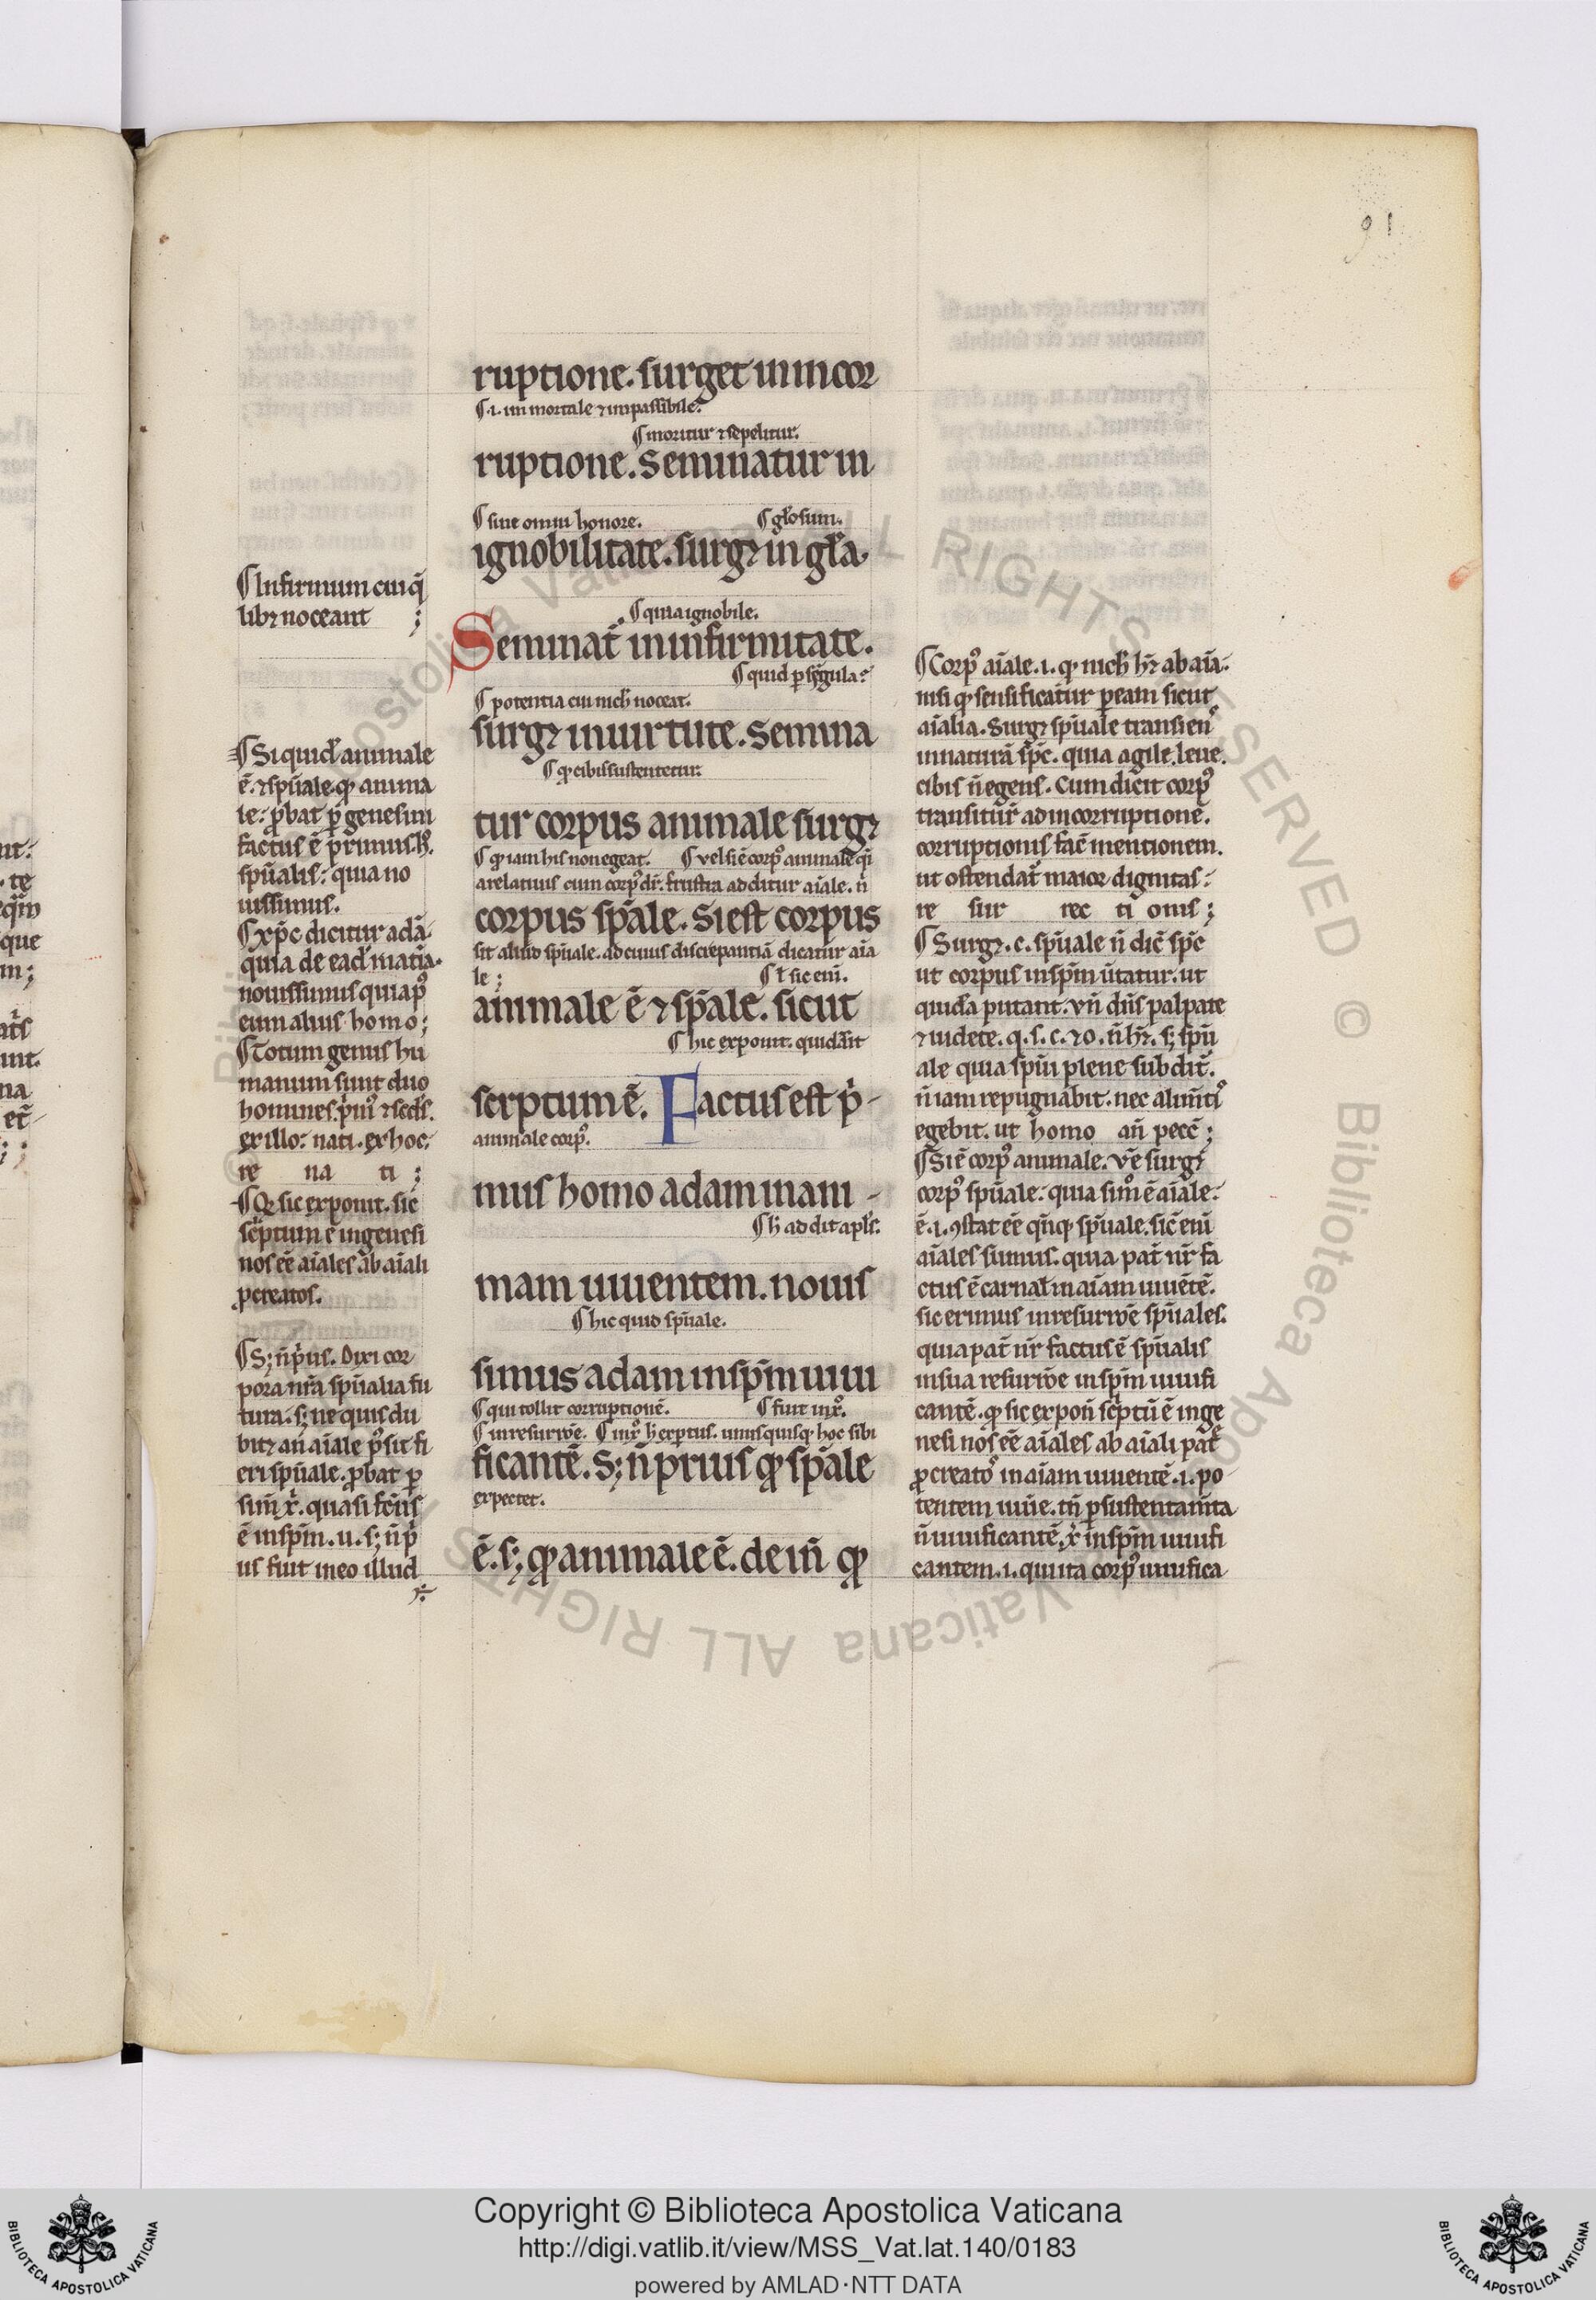 91
ruptione. surget in incor
¶ .i. inmortale ⁊ inpassibile.
¶ moritur ⁊ sepelitur.
ruptione. Seminatur in
¶ sine omni honore. ¶ gl̃osum.
ignobilitate. surgꝫ in gl̃a.
¶ quia ignobile.
Seminat᷑ in infirmitate.
¶ quid p singula?
¶ potentia cui nich̃ noceat.
surgꝫ in uirtute. Semina
¶ qꝫ cibis sustentetur.
tur corpus animale surgꝫ
¶ qꝫ iam his non egeat. ¶ vel si ē corpꝰ animale qͥ
a relatiuis cum corpꝰ dr̃. frustra additur aīale. ñ
corpus sp̃ale. Si est corpus
sit aliud'sp̃uale. ad cuius discrepantiā dicatur aīa
le; ¶ ł sic eni.
animale ē ⁊ sp̃ale. sicut
¶ hic exponit. quid dix̃it
scrptum ē. Factus est pͥ-
animale corpꝰ.
mus homo adam in ani-
¶ h̃ addit apl̃s.
mam uiuentem. nouis
¶ hic quid sp̃uale.
simus adam in sp̃m uiui
¶ qui tollit corruptionē. ¶ fuit in xͦ.
¶ in resurrōe. ¶ in xͦ h̃ exptus. unusquisqꝫ hoc sibi
ficantē. S; ñ prius qꝫ sp̃ale
expectet.
ē. s; qꝫ animale ē. dein̄ qꝫ
¶ Infirmum cui qͣ
libꝫ noceant ;
¶ Si quid' animale
ē. ⁊ sp̃uale. qꝫ anima
le: pbat p genesim
factus ē primus h̊.
sp̃ualis: quia no
uissimus.
¶ xp̃c dicitur adā.
quia de ead' matia.
nouissimus quia pꝰ
eum alius homo;
¶ Totum genus hu
manum sunt duo
homines. pͥmꝰ ⁊ sec̃ds.
ex illo: nati. ex hoc.
re na ti ;
¶ Q̃ sic exponit. sic
scͥptum ē in genesi
nos eē aīales ab aīali
pcreatos.
¶ S; ñ pͥus. Dixi cor
pora nr̃a sp̃ualia fu
tura. s; ne quis du
bitꝫ an aīale pꝰsit fi
eri sp̃uale. pbat p
sim̃ x̃. quasi fc̃us
ē in sp̃m. u. s; ñ pͥ
us fuit in eo illud
¶ Corpꝰ aīale .i. qꝫ nich̃ hꝫ ab aīa.
nisi qꝫ sensificatur p eam sicut
aīalia. Surgꝫ sp̃uale transiens
in naturā sp̃c. quia agile, leue.
cibis ñ egens. Cum dicit corpꝰ
transitur̃ ad incorruptionē.
corruptionis fac̃ mentionem.
ut ostendat᷑ maior dignitas.
re sur rec ti onis ;
¶ Surgꝫ. c. sp̃uale ñ dic̃ sp̃c
ut corpus in sp̃m ūtatur. ut
quida putant. vñ dñs palpate
⁊ uidete. q. s. c. ⁊ o. ñ hꝫ. s; sp̃u
ale quia sp̃ui plene subdit᷑.
ñ iam repugnabit. nec alim̃tꝰ
egebit. ut homo an̄ pecc̃ ;
¶ Si ē corpꝰ animale. vē surgꝫ
corpꝰ sp̃uale: quia simꝰ ē aīale:
ē .i. ꝯstat eē qñqꝫ sp̃uale. sic̃ eni
aīales sumus. quia pat̃ nr̃ fa
ctus ē carnał in aīam uiuētē.
sic erimus in resurrōe sp̃uales.
quia pat̃ nr̃ factus ē sp̃ualis
in sua resurrōe in sp̃m uiuifi
cantē. qꝫ sic expon̄ scͥptū ē in ge
nesi nos eē aīales ab aīali patͤ
pcreatoꝰ in aīam uiuentē .i. po
tentem uiue. tñ p sustentam̃ta
ñ uiuificantē, x̃ in sp̃m uiuifi
cantem .i. qui ita corpꝰ uiuifica
Copyright © Biblioteca Apostolica Vaticana
http://digi.vatlib.it/view/MSS_Vat.lat.140/0183
powered by AMLAD·NTT DATA